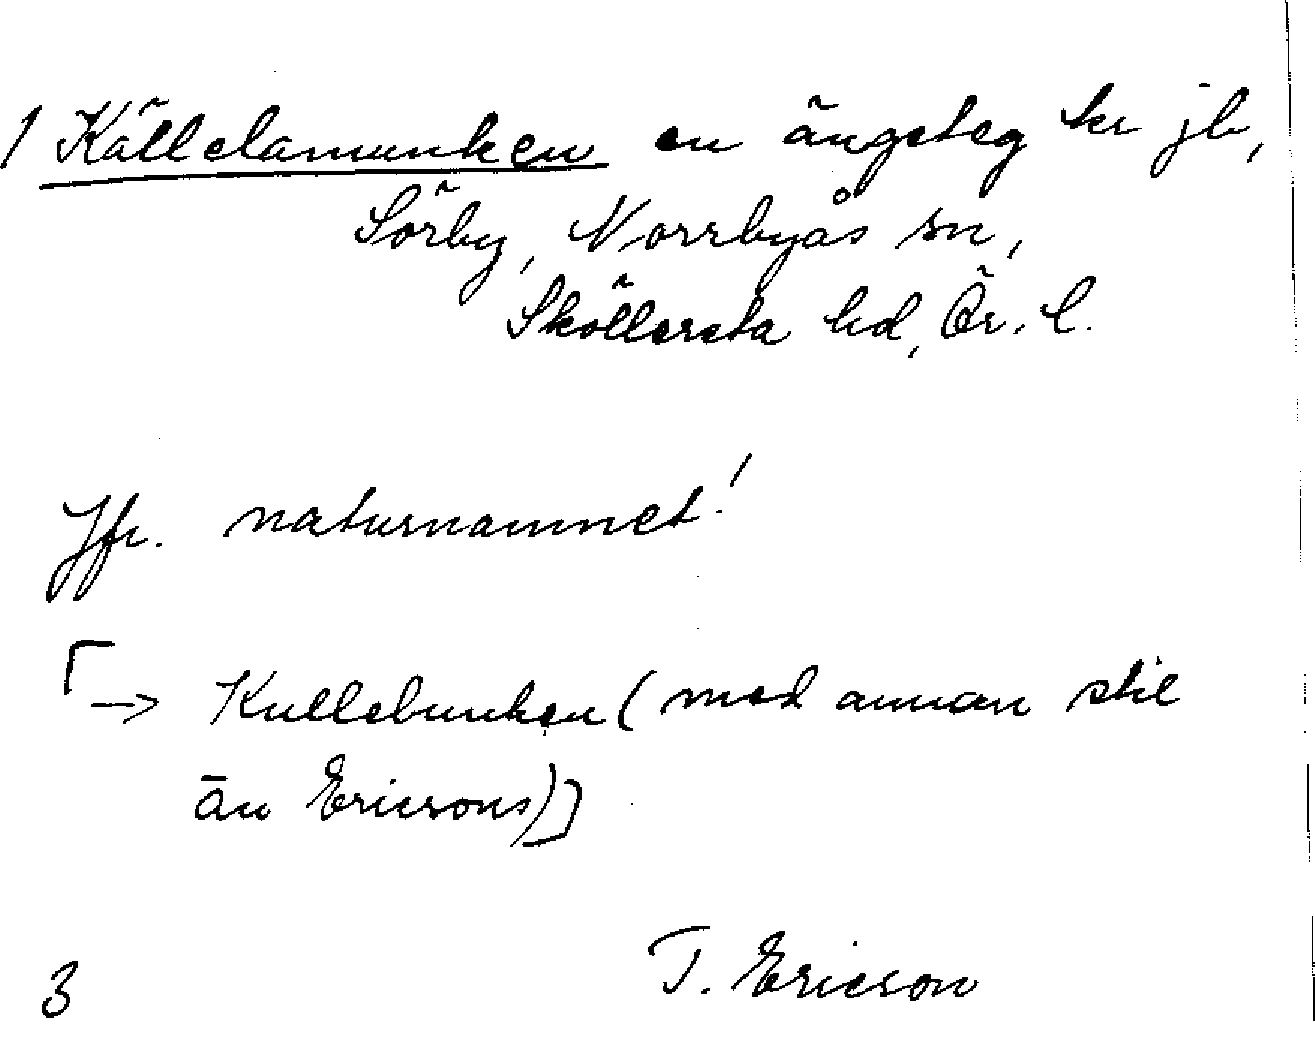 1 Källelamunken en ängsteg kr jb,
Sörby, Norrbyås sn,
Sköllersta hd, Ör. l.
Jfr. naturnamnet!
[→ Kullebunken (med annan stil
än Ericsons)]
T. Ericson
3